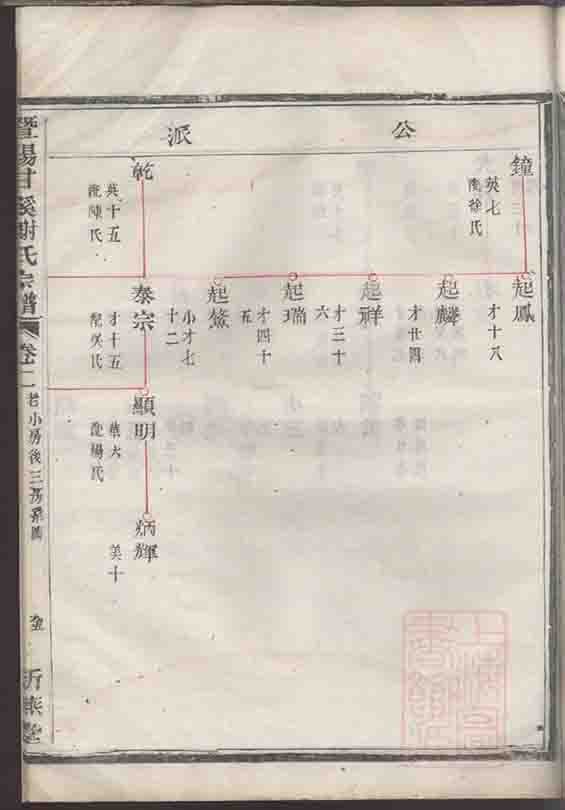 公派
鐘
英七
配徐氏
起鳳
才十八
起麟
才廿四
起祥
才三十
六
起瑞
才四十
五
起鰲
小才七
十二
乾
英十五
配陳氏
泰宗
才十五
配吳氏
顯明
華六
配楊氏
炳輝
美十
暨陽甘溪謝氏宗譜
卷二
老小房後三房系圖